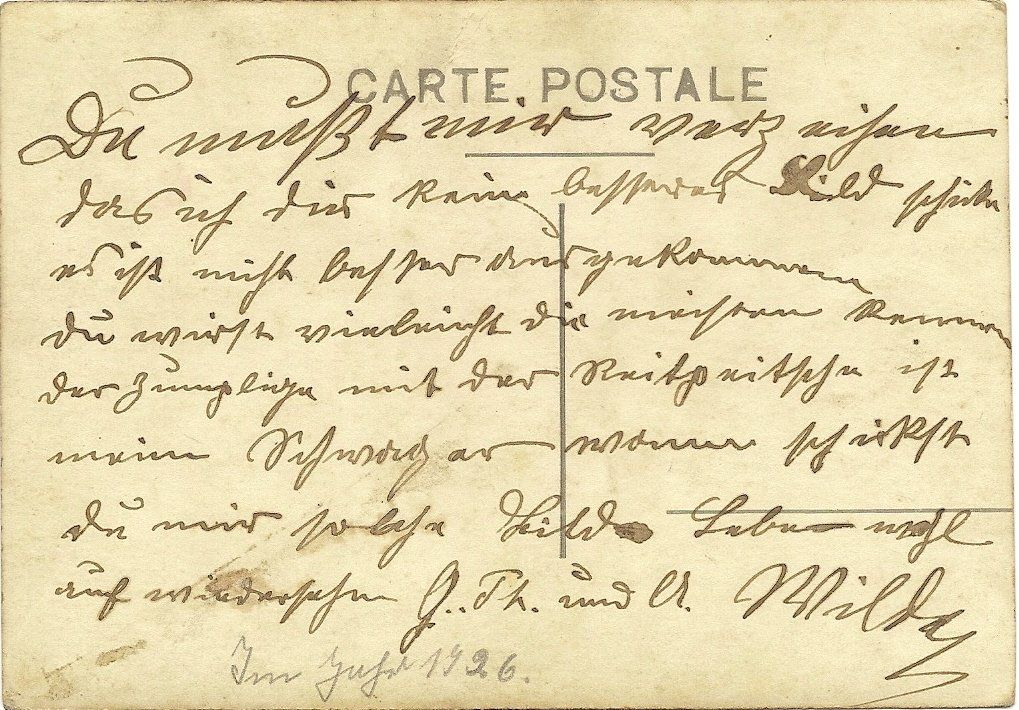 CARTE POSTALE
Du mußt mir verzeihen
das ich dir kein besseres Bild schicke
es ist nicht besser ausgekommen
du wirst vieleicht die meisten kennen
der mit der Reitpeitsche ist
mein Schwager wann schickst
du mir solche Bild Lebe wohl
auf wiedersehn G. Th. und A. Wilde
Im Jahr 1926.